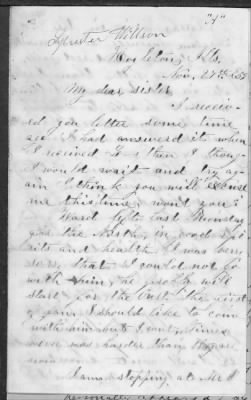 "A"
Lester Willson
Hoyleton, Ills.
Nov. 27th
My dear sister
I receiv-
ed you letter some time
ago I had answered it when
I received & then I thou
I would wait and try ag-
ain I think you will excuse
me this time, wont you?
Ward left last Monday
for the North, in good spi
rits and health. I was very
sorry that I could not go
with him, he
start for the the first
of year. I should like to come
with him but I cant, times
were harder than they are
now
I am stopping at Mr